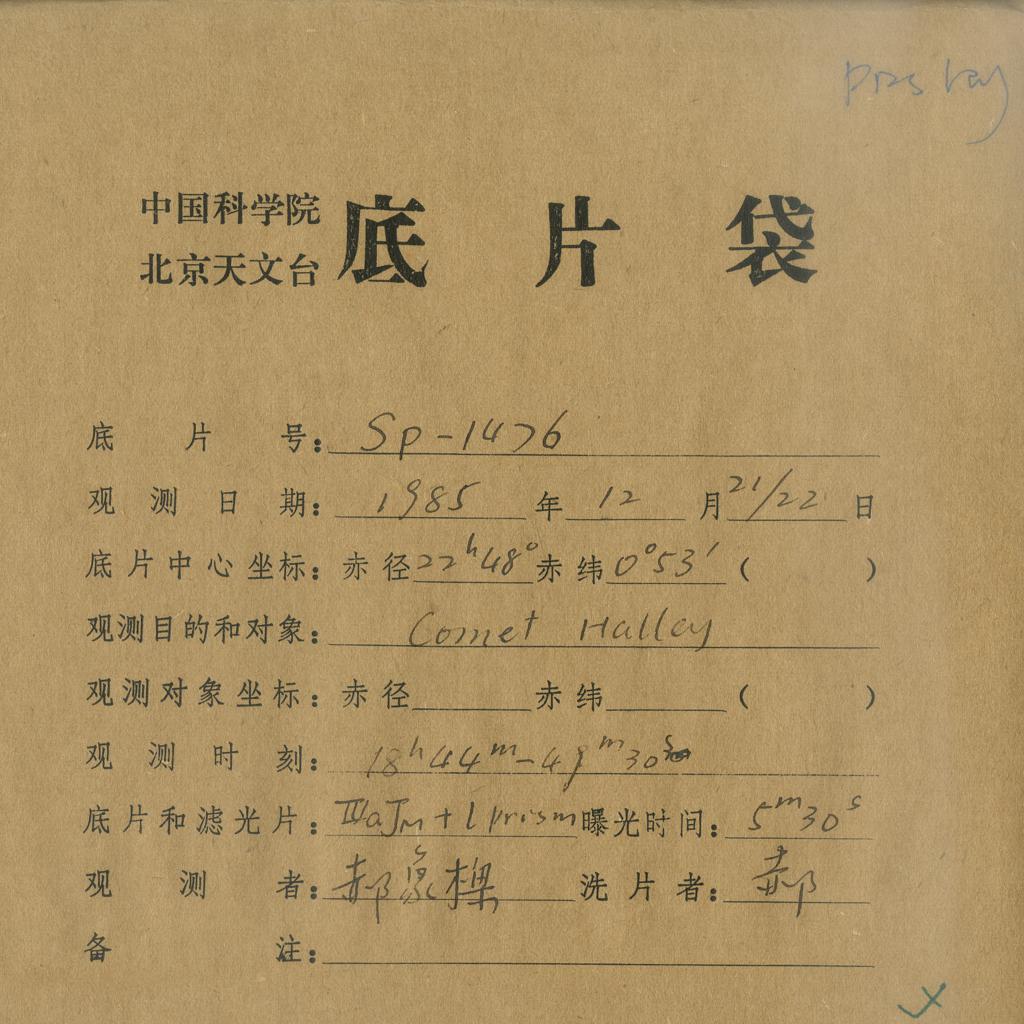 中国科学院
北京天文台
底片袋
底片号：Sp-1476
观测日期：1985年12月21/22日
底片中心坐标：赤径22h48°赤纬0°53′（ ）
观测目的和对象：Comet Halley
观测对象坐标：赤径 赤纬 （ ）
观测时刻：18h44m-49m30s
底片和滤光片：IIIaJM+1 prism 曝光时间：5m30s
观测者：郝象樑 洗片者：郝
备注：